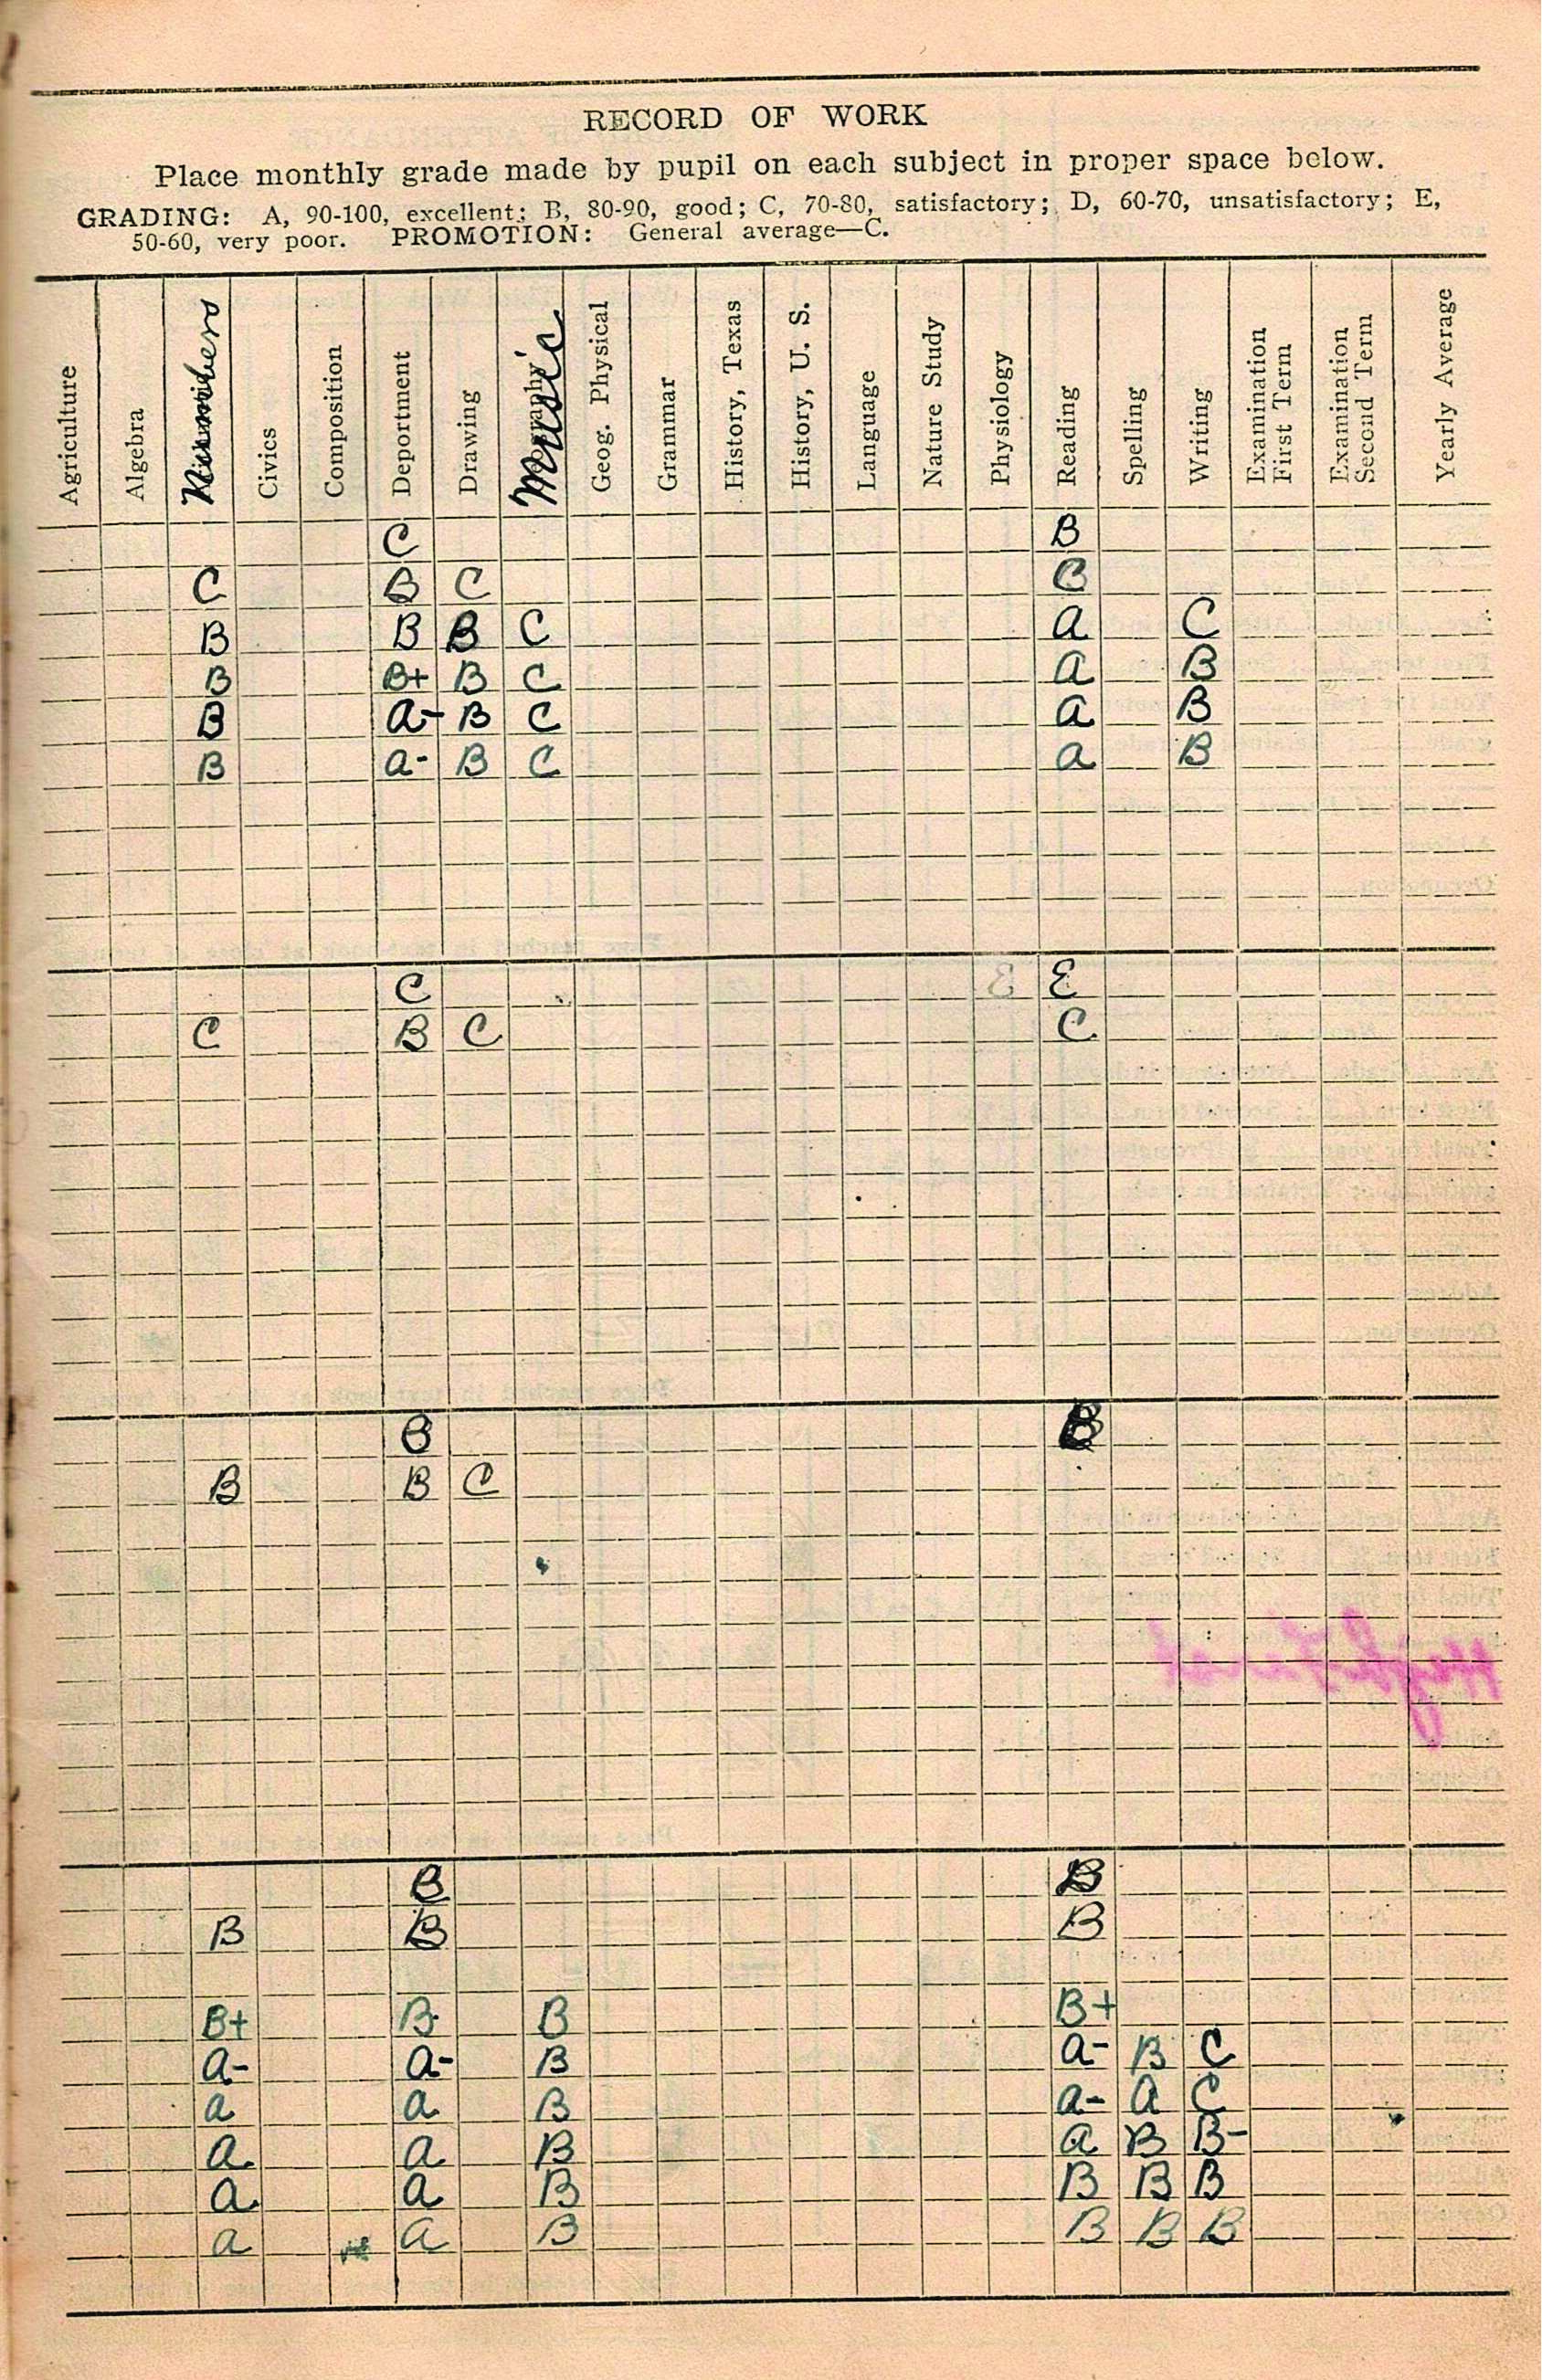 RECORD OF WORK
Place monthly grade made by pupil on each subject in proper space below.
GRADING: A, 90-100, excellent; B, 80-90, good; C, 70-80, satisfactory; D, 60-70, unsatisfactory; E,
50-60, very poor. PROMOTION: General average—C.
Agriculture Algebra Numbers Civics Composition Deportment Drawing Music Geog. Physical Grammar History, Texas History, U. S. Language Nature Study Physiology Reading Spelling Writing Examination First Term Examination Second Term Yearly Average
C B
C B C C
B B B C A C
B B+ B C A B
B A- B C A B
B A- B C A B
C E E
C B C C
B B
B B C
B B
B B B
B+ B- B B+
A- A- B A- B C
A A B A- A C
A A B A B B-
A A B B B B
A A B B B B